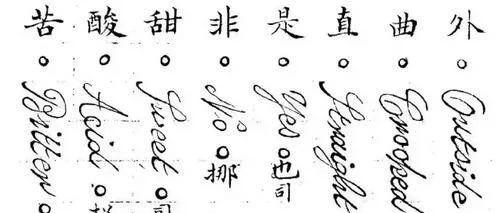 外 Outside
曲 Crooked
直 Straight
是 Yes 也司
非 No 挪
甜 Sweet 司
酸 Acid
苦 Bitter